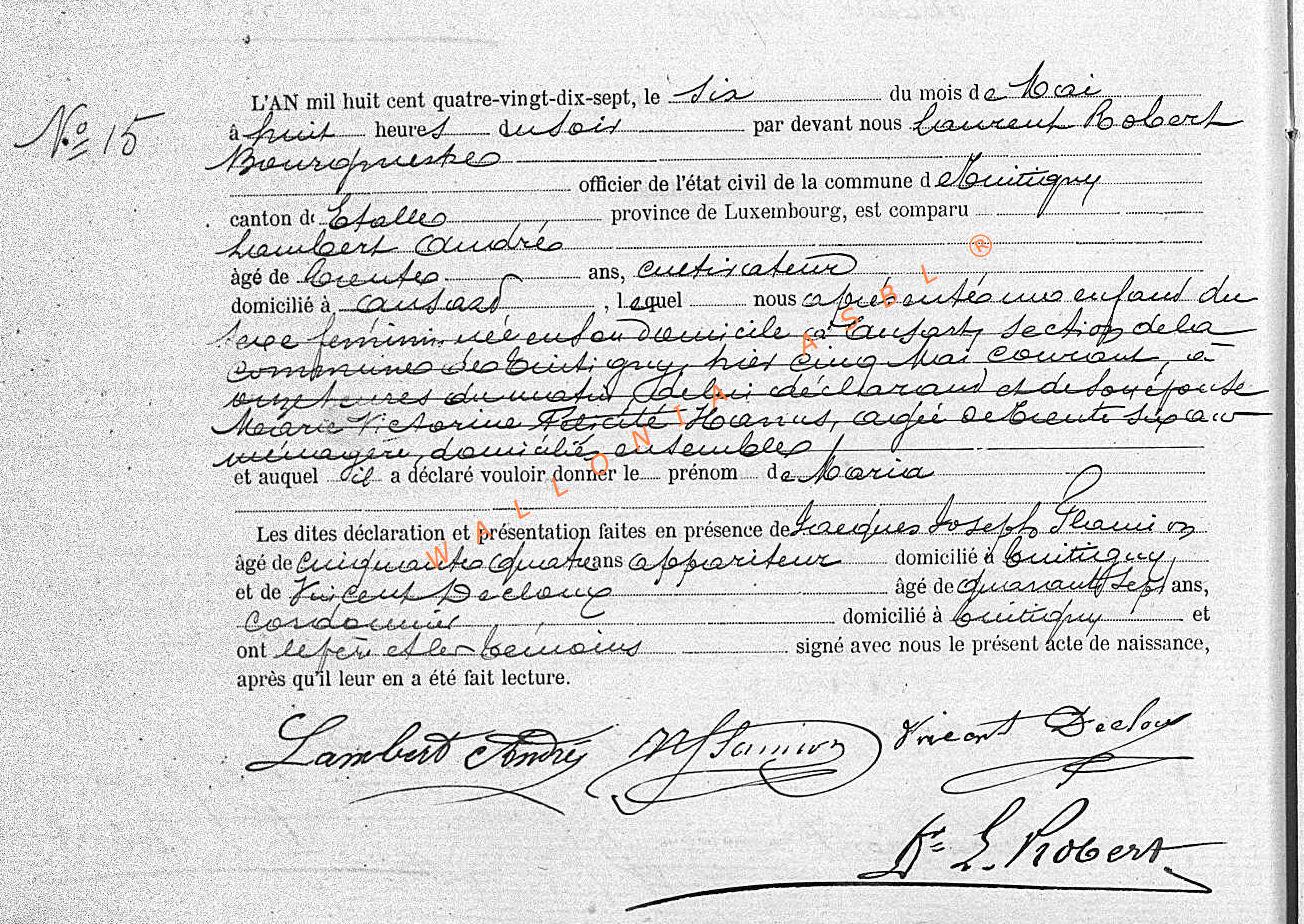 N° 15
L'AN mil huit cent quatre-vingt-dix-sept, le six du mois de Mai
à huit heures du soir par devant nous Laurent Robert
Bourgmestre
officier de l'état civil de la commune de Tintigny
canton de Etalle province de Luxembourg, est comparu
Lambert André
âgé de trente ans, cultivateur
domicilié à Ansart, lequel nous a présenté un enfant du
sexe féminin née en son domicile à Ansart, section de la
commune de Tintigny, hier cinq Mai courant, à
onze heures du matin de lui déclarant et de son épouse
Marie Victorine Félicité Hanus, agée de trente six ans
ménagère, domiciliés ensembles
et auquel il a déclaré vouloir donner le prénom de Maria
Les dites déclaration et présentation faites en présence de Jacques Joseph
âgé de cinquante quatre ans appariteur domicilié à Tintigny
et de Vincent Decloux âgé de quarante sept ans,
cordonnier domicilié à Tintigny et
ont le père et les témoins signé avec nous le présent acte de naissance,
après qu'il leur en a été fait lecture.
Lambert André Vincent Decloux
L. Robert
WALLONIA ASBL ®